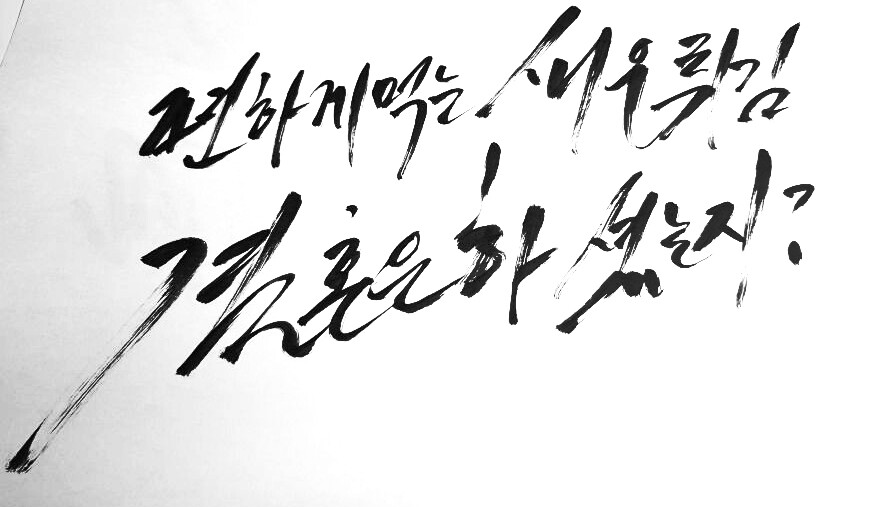 편하게 먹는 새우튀김
결혼은 하셨는지?